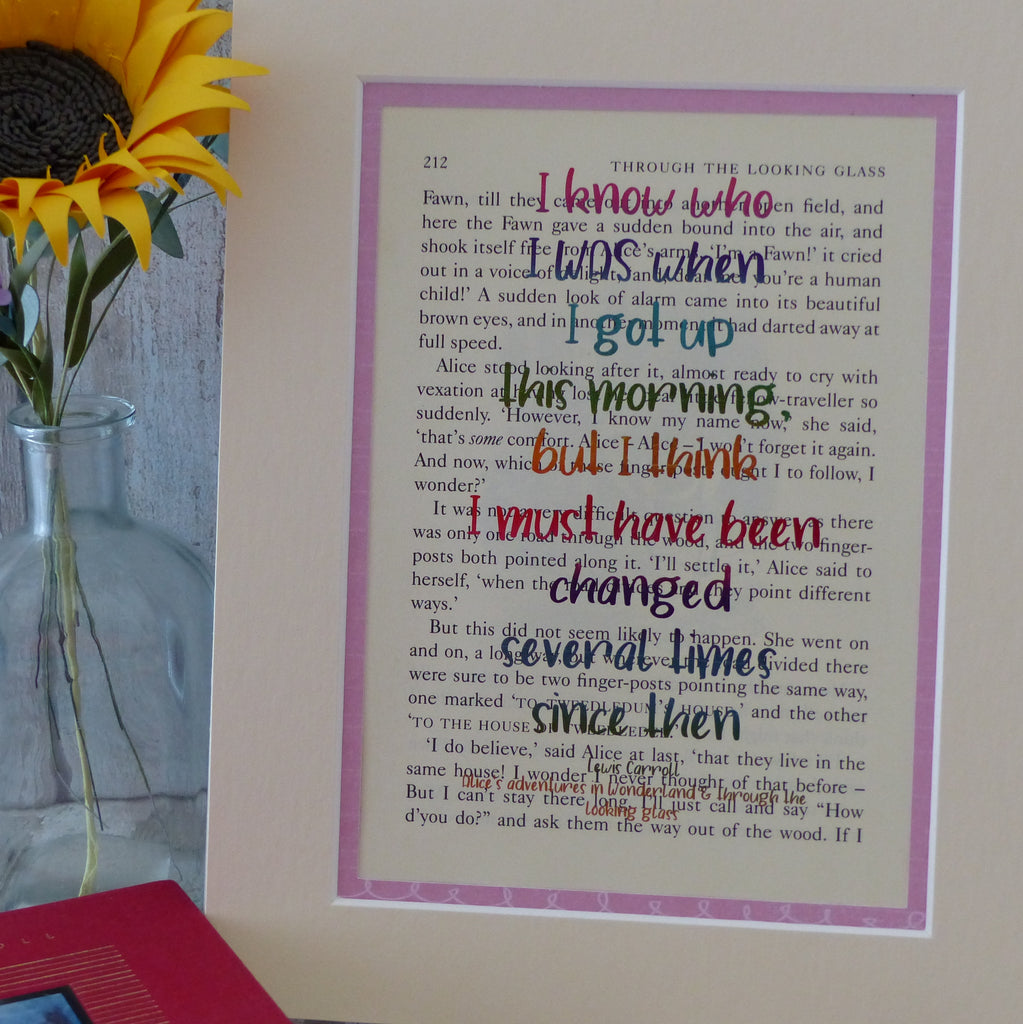 212 THROUGH THE LOOKING GLASS
Fawn, till they came out into another open field, and
here the Fawn gave a sudden bound into the air, and
shook itself free from Alice's arms. 'I'm a Fawn!' it cried
out in a voice of delight, 'and, dear me! you're a human
child!' A sudden look of alarm came into its beautiful
brown eyes, and in another moment it had darted away at
full speed.
Alice stood looking after it, almost ready to cry with
vexation at having lost her dear little fellow-traveller so
suddenly. 'However, I know my name now,' she said,
'that's some comfort. Alice – Alice – I won't forget it again.
And now, which of these finger-posts ought I to follow, I
wonder?'
It was not a very difficult question to answer, as there
was only one road through the wood, and the two finger-
posts both pointed along it. 'I'll settle it,' Alice said to
herself, 'when the road divides and they point different
ways.'
But this did not seem likely to happen. She went on
and on, a long way, but wherever the road divided there
were sure to be two finger-posts pointing the same way,
one marked 'TO TWEEDLEDUM'S HOUSE,' and the other
'TO THE HOUSE OF TWEEDLEDEE.'
'I do believe,' said Alice at last, 'that they live in the
same house! I wonder I never thought of that before –
But I can't stay there long. I'll just call and say "How
d'you do?" and ask them the way out of the wood. If I
I know who
I was when
I got up
this morning,
but I think
I must have been
changed
several times
since then
Lewis Carroll
Alice's adventures in Wonderland & through the
looking glass
OLL